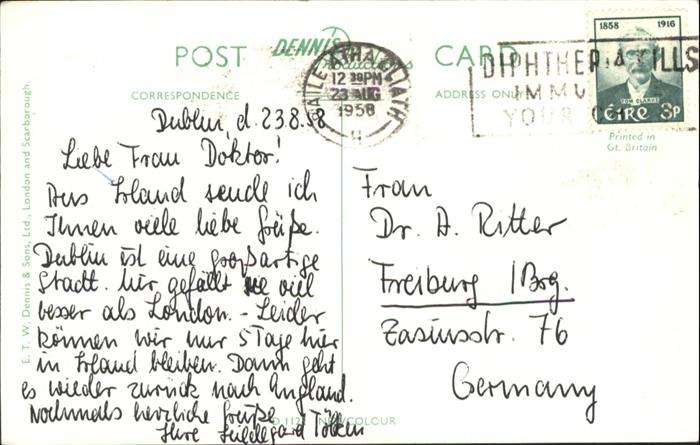 POST CARD
DENNIS
Productions
CORRESPONDENCE
ADDRESS ONLY
BAILE ÁTHA CLIATH
12 30PM
23 AUG
1958
DIPHTHERIA KILLS
IMMU
YOUR
1858 1916
TOM CLARKE
ÉIRE 3p
Printed in
Gt. Britain
E. T. W. Dennis & Sons, Ltd., London and Scarborough.
Dublin, d. 23.8.58
Liebe Frau Doktor!
Aus Irland sende ich
Ihnen viele liebe Grüße.
Dublin ist eine großartige
Stadt. Mir gefällt sie viel
besser als London. - Leider
können wir nur 5 Tage hier
in Irland bleiben. Dann geht
es wieder zurück nach England.
Nochmals herzliche Grüße
Ihre Hildegard
Frau
Dr. A. Ritter
Freiburg / Brsg.
Zasiusstr. 76
Germany
COLOUR